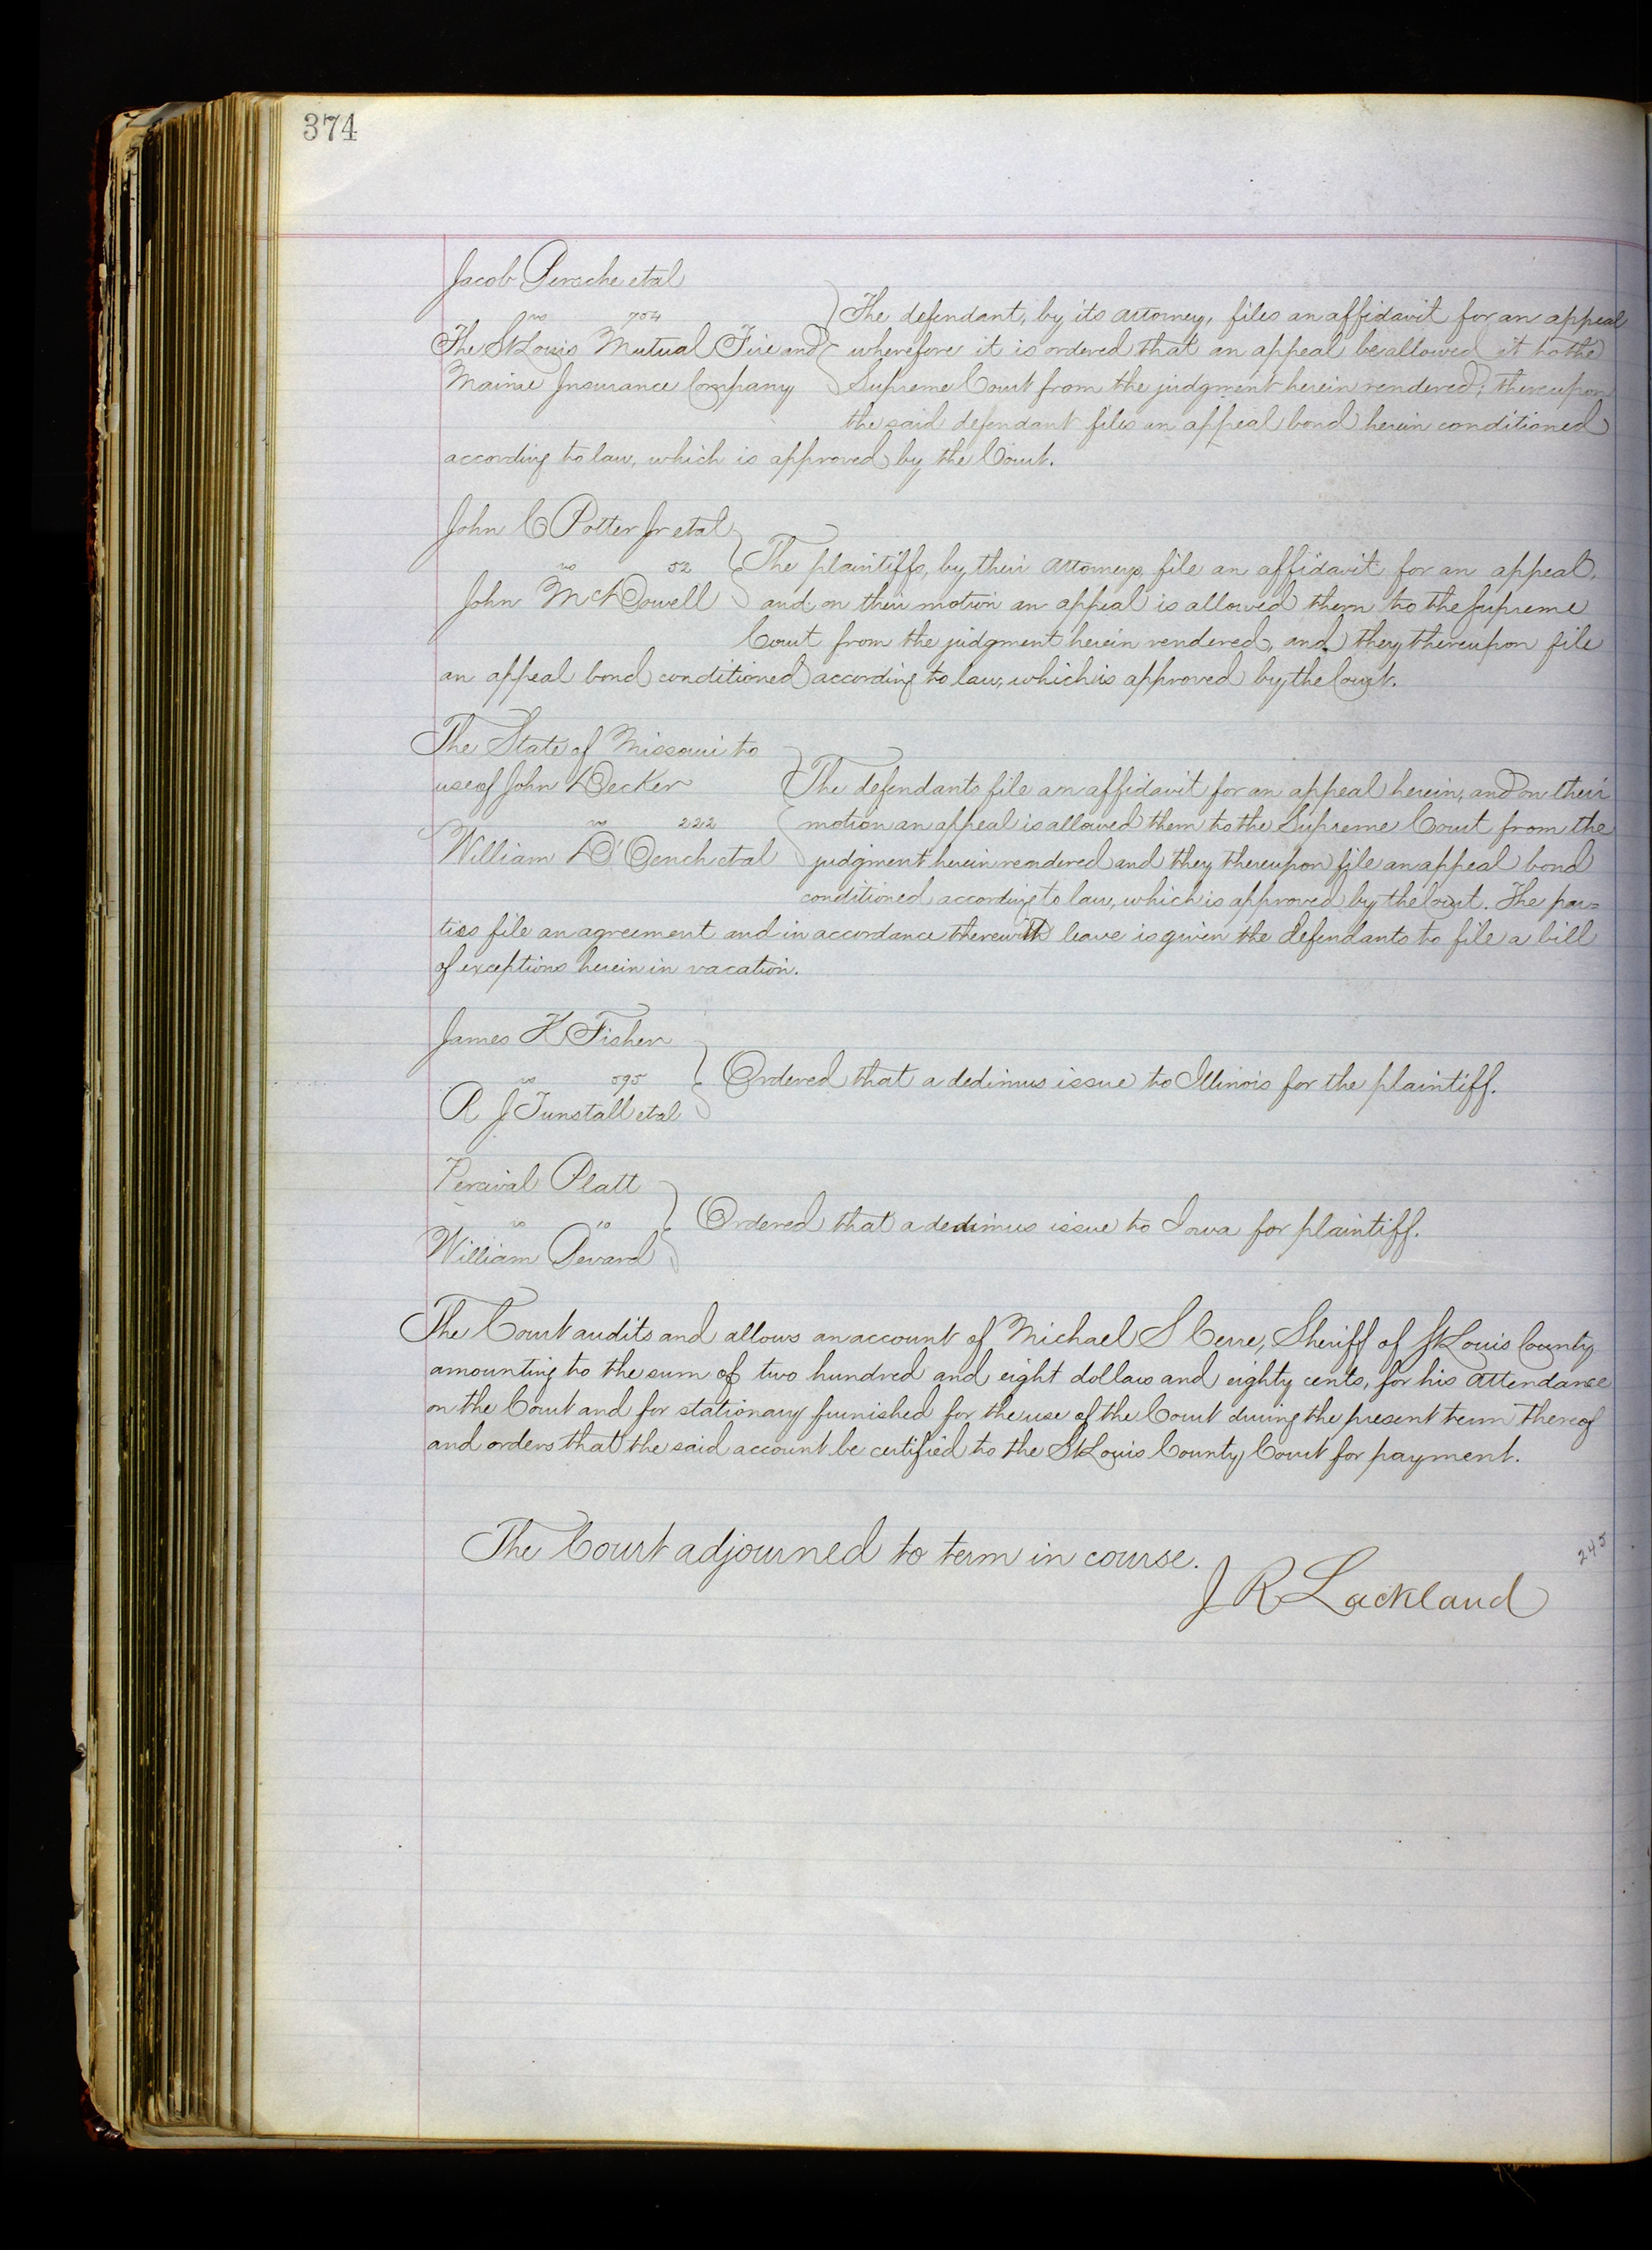 374
Jacob Persche et al
vs 704
The St Louis Mutual Fire and
Marine Insurance Company
The defendant, by its attorney, files an affidavit for an appeal
wherefore it is ordered that an appeal be allowed it to the
Supreme Court from the judgment herein rendered; thereupon
the said defendant files an appeal bond herein conditioned
according to law, which is approved by the Court.
John C Potter Jr et al
vs 52
John McDowell
The plaintiffs, by their attorneys, file an affidavit for an appeal,
and on their motion an appeal is allowed them to the Supreme
Court from the judgment herein rendered, and they thereupon file
an appeal bond conditioned according to law, which is approved by the Court.
The State of Missouri to
use of John Decker
vs 222
William D'Oench et al
The defendants file an affidavit for an appeal herein, and on their
motion an appeal is allowed them to the Supreme Court from the
judgment herein rendered and they thereupon file an appeal bond
conditioned according to law, which is approved by the Court. The par=
ties file an agreement and in accordance therewith leave is given the defendants to file a bill
of exceptions herein in vacation.
James K Fisher
vs 595
R J Tunstall et al
Ordered that a dedimus issue to Illinois for the plaintiff.
Percival Platt
vs 10
William Devard
Ordered that a dedimus issue to Iowa for plaintiff.
The Court audits and allows an account of Michael S Cerre, Sheriff of St Louis County
amounting to the sum of two hundred and eight dollars and eighty cents, for his attendance
on the Court and for stationary furnished for the use of the Court during the present term thereof
and orders that the said account be certified to the St Louis County Court for payment.
The Court adjourned to term in course.
245
J R Lackland